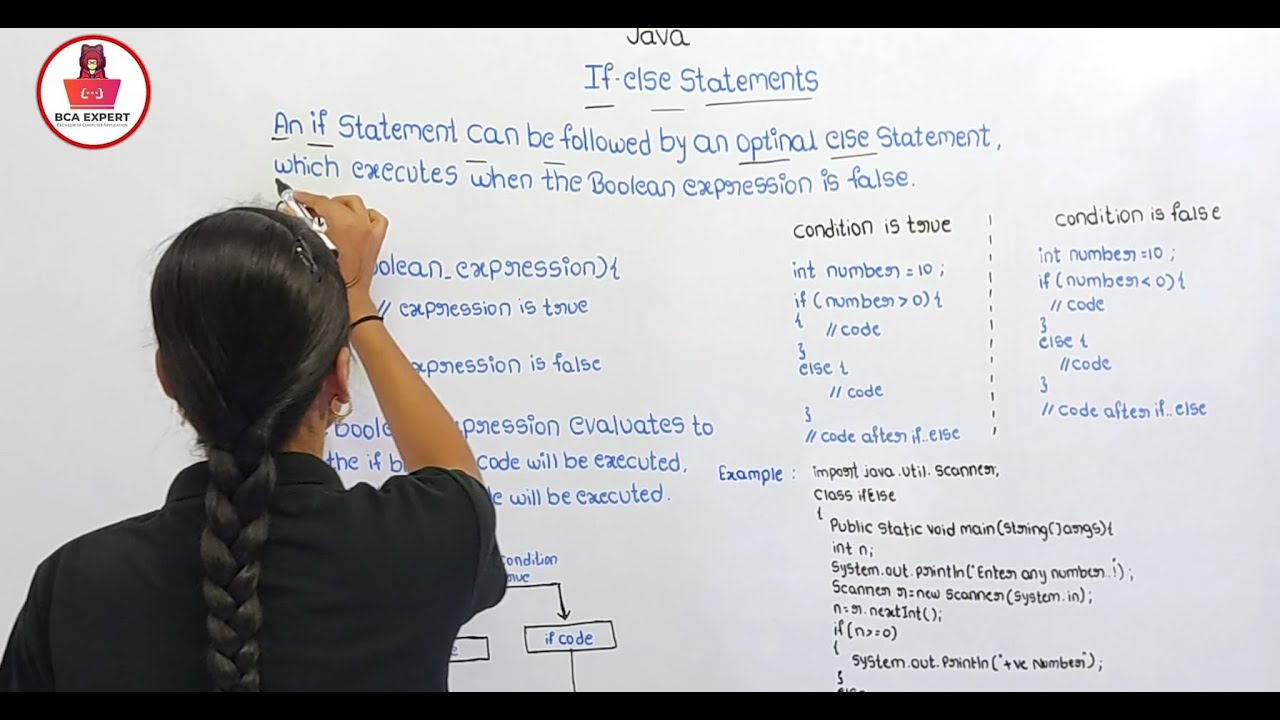 BCA EXPERT
BACHELOR OF COMPUTER APPLICATION
Java
If-else Statements
An if Statement can be followed by an optinal else Statement,
which executes when the Boolean expression is false.
oolean_expression){
// expression is true
xpression is false
boole pression evaluates to
the if b code will be executed,
de will be executed.
condition
true
if code
condition is true
int number = 10 ;
if (number > 0) {
{ // code
}
else {
// code
}
// code after if..else
condition is false
int number =10 ;
if (number < 0) {
// code
}
else {
// code
}
// code after if..else
Example :
import java.util.scanner;
Class ifElse
{
Public static void main(string()args){
int n;
System.out.println("Enter any number.!);
Scanner r=new scanner(system.in);
n=r.nextInt();
if(n>=0)
{
System.out.println("+ve Number");
}
else